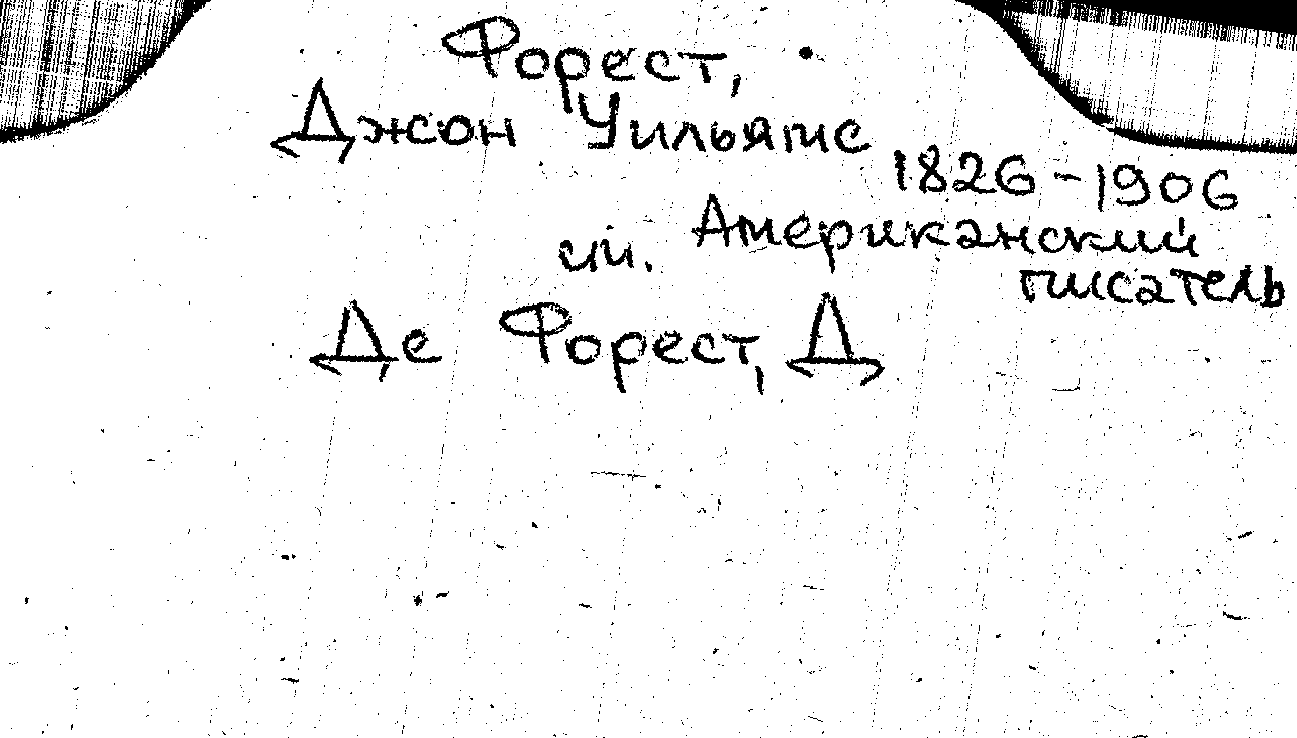 Форест,
Джон Уильямс
1826-1906
Американский
писатель
см.
Де Форест, Д